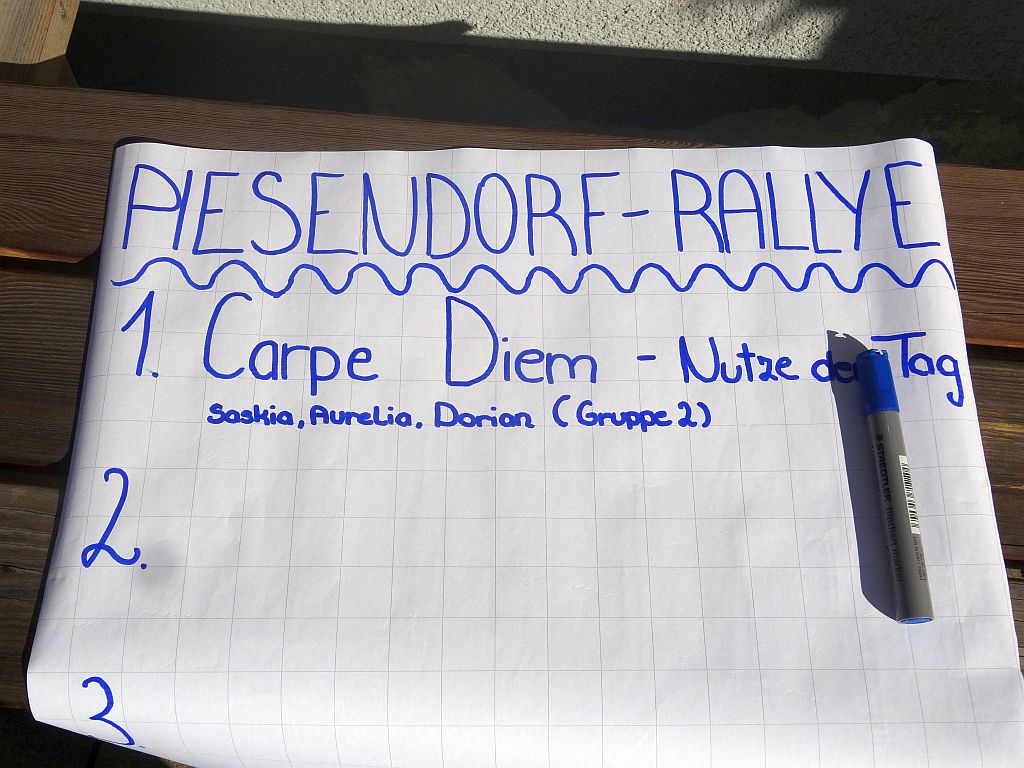 PIESENDORF-RALLYE
1. Carpe Diem - Nutze den Tag
Saskia, Aurelia, Dorian (Gruppe 2)
2.
3.
STAEDTLER flipchart marker